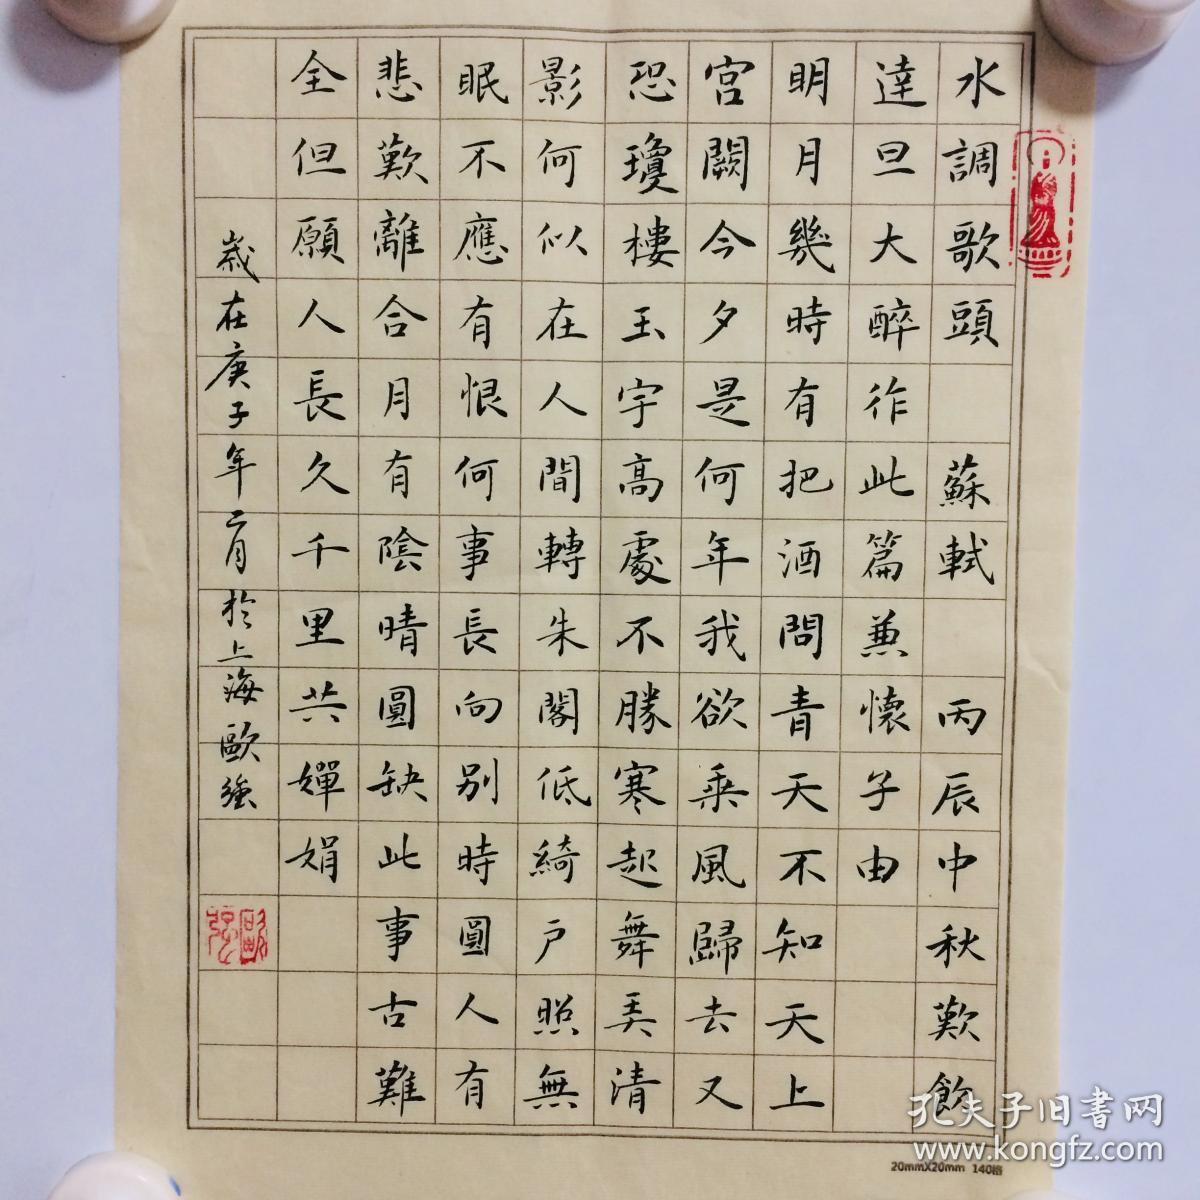 水調歌頭 蘇軾 丙辰中秋歎飲
達旦大醉作此篇兼懷子由
明月幾時有把酒問青天不知天上
宮闕今夕是何年我欲乘風歸去又
恐瓊樓玉宇高處不勝寒起舞弄清
影何似在人間轉朱閣低綺戶照無
眠不應有恨何事長向別時圓人有
悲歎離合月有陰晴圓缺此事古難
全但願人長久千里共嬋娟
歲在庚子年二月於上海歐強
孔夫子旧书网
www.kongfz.com
20mmX20mm 140格